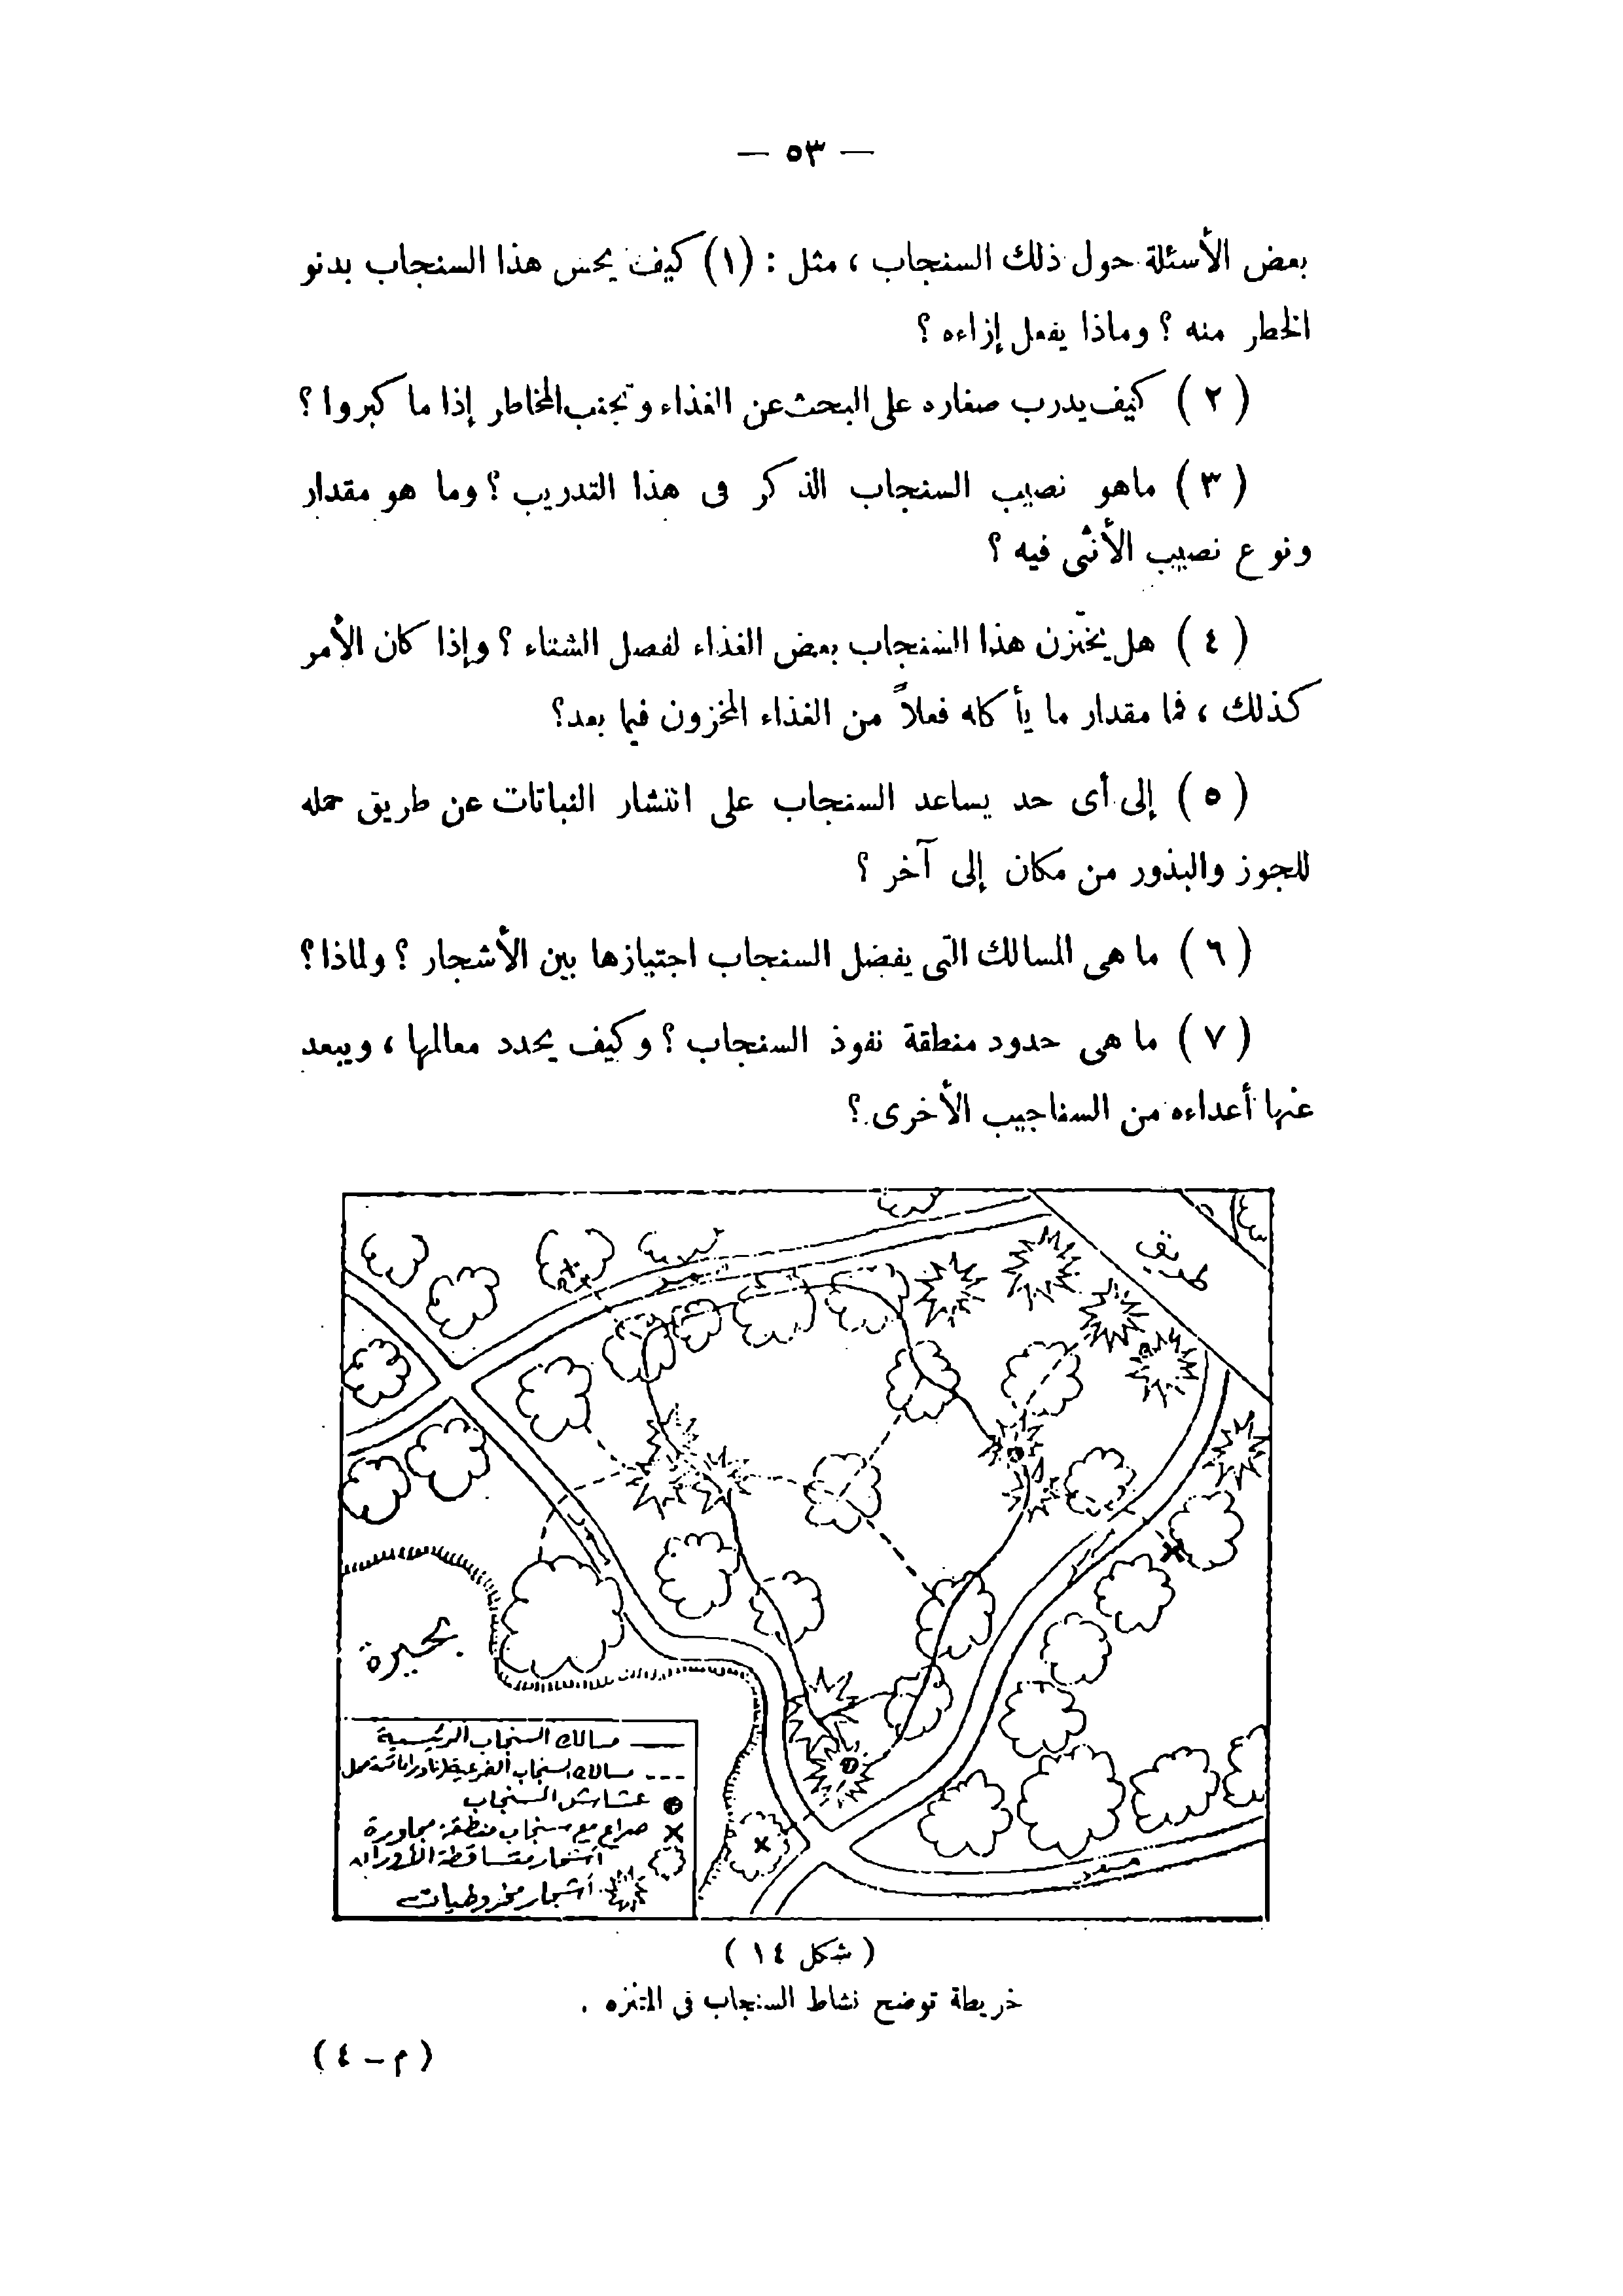 — ٥٣ —
بعض الأسئلة حول ذلك السنجاب ، مثل : (١) كيف يحس هذا السنجاب بدنو
الخطر منه ؟ وماذا يفعل إزاءه ؟
( ٢ ) كيف يدرب صغاره على البحث عن الغذاء وتجنب المخاطر إذا ما كبروا ؟
( ٣ ) ماهو نصيب السنجاب الذكر فى هذا التدريب ؟ وما هو مقدار
ونوع نصيب الأنثى فيه ؟
( ٤ ) هل يختزن هذا السنجاب بعض الغذاء لفصل الشتاء ؟ وإذا كان الأمر
كذلك ، فما مقدار ما يأكله فعلاً من الغذاء المخزون فيما بعد؟
( ٥ ) إلى أى حد يساعد السنجاب على انتشار النباتات عن طريق حمله
للجوز والبذور من مكان إلى آخر ؟
( ٦ ) ما هى المسالك التى يفضل السنجاب اجتيازها بين الأشجار ؟ ولماذا ؟
( ٧ ) ما هى حدود منطقة نفوذ السنجاب ؟ وكيف يحدد معالمها ، ويبعد
عنها أعداءه من السناجيب الأخرى ؟
طريق
بحيرة
مسالك السنجاب الرئيسية
مسالك السنجاب الفرعية
عشاش السنجاب
صراع مع سنجاب منطقة مجاورة
أشجار متساقطة الأوراق
أشجار مخروطيات
( شكل ١٤ )
خريطة توضح نشاط السنجاب فى المتنزه .
( م – ٤ )